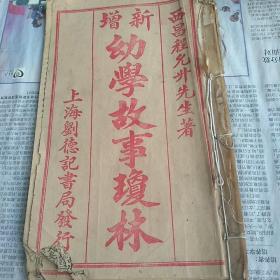 西昌程允升先生著
新增
幼學故事瓊林
上海劉德記書局發行